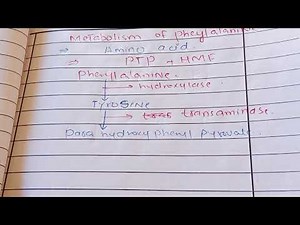 Metabolism of pheylalanin
⇒ Amino acid.
⇒ PTP + HME
Phenylalanine.
→ hydroxylase
Tyrosene
→ transaminase.
Para hydroxy phenyl pyruvate.